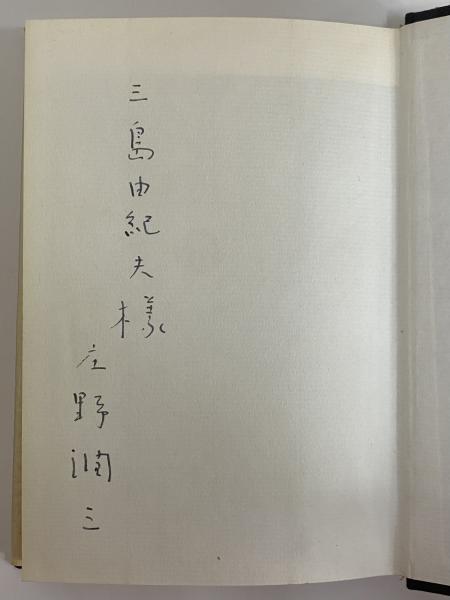 三島由紀夫様
庄野潤三